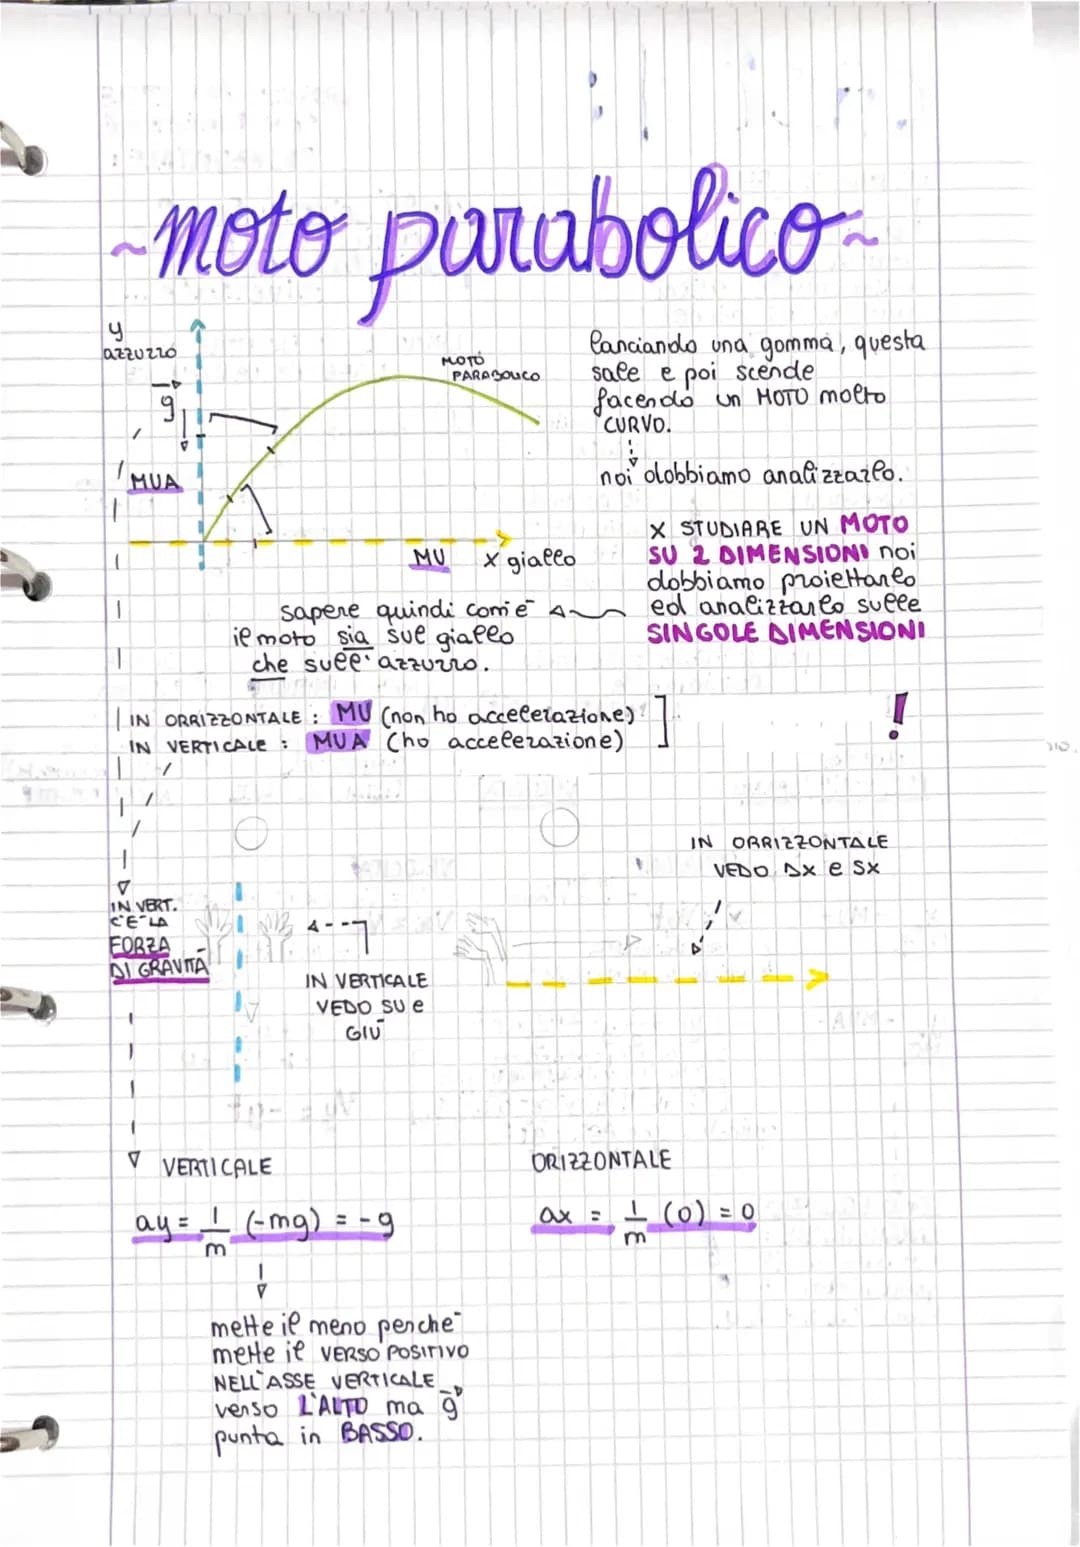 ~moto parabolico~
y
azzurro
g
MUA
MOTO
PARABOLICO
MU
x giallo
lanciando una gomma, questa
sale e poi scende
facendo un MOTO molto
CURVO.
noi dobbiamo analizzarlo.
X STUDIARE UN MOTO
SU 2 DIMENSIONI noi
dobbiamo proiettarlo
ed analizzarlo sulle
SINGOLE DIMENSIONI
sapere quindi com'è
il moto sia sul giallo
che sull'azzurro.
IN ORRIZZONTALE : MU (non ho accelerazione)
IN VERTICALE : MUA (ho accelerazione)
!
IN ORRIZZONTALE
VEDO DX e SX
IN VERT.
C'È LA
FORZA
DI GRAVITÀ
IN VERTICALE
VEDO SU e
GIÙ
VERTICALE
ay = 1/m (-mg) = -g
ORIZZONTALE
ax = 1/m (0) = 0
mette il meno perchè
mette il VERSO POSITIVO
NELL'ASSE VERTICALE
verso L'ALTO ma g
punta in BASSO.